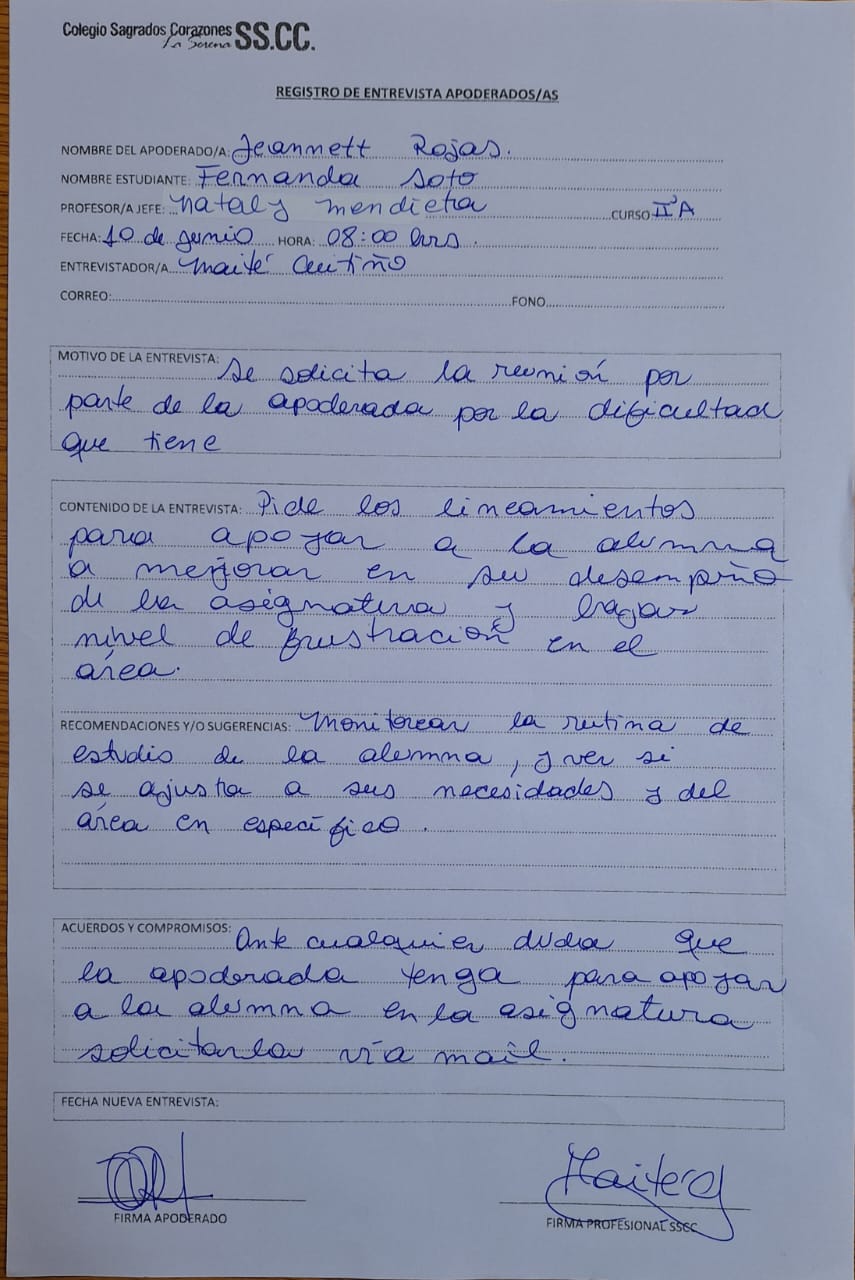 Colegio Sagrados Corazones SS.CC.
La Serena
REGISTRO DE ENTREVISTA APODERADOS/AS
NOMBRE DEL APODERADO/A: Jeannett Rojas.
NOMBRE ESTUDIANTE: Fernanda Soto
PROFESOR/A JEFE: Nataly Mendieta CURSO II°A
FECHA: 10 de junio HORA: 08:00 hrs.
ENTREVISTADOR/A Maité Cuitiño
CORREO: FONO
MOTIVO DE LA ENTREVISTA:
Se solicita la reunión por
parte de la apoderada por la dificultad
que tiene
CONTENIDO DE LA ENTREVISTA: Pide los lineamientos
para apoyar a la alumna
a mejorar en su desempeño
de la asignatura y bajar
nivel de frustración en el
área.
RECOMENDACIONES Y/O SUGERENCIAS: Monitorear la rutina de
estudio de la alumna, y ver si
se ajusta a sus necesidades y del
área en específico.
ACUERDOS Y COMPROMISOS:
Ante cualquier duda que
la apoderada tenga para apoyar
a la alumna en la asignatura
solicitarla vía mail.
FECHA NUEVA ENTREVISTA:
FIRMA APODERADO
FIRMA PROFESIONAL SSCC